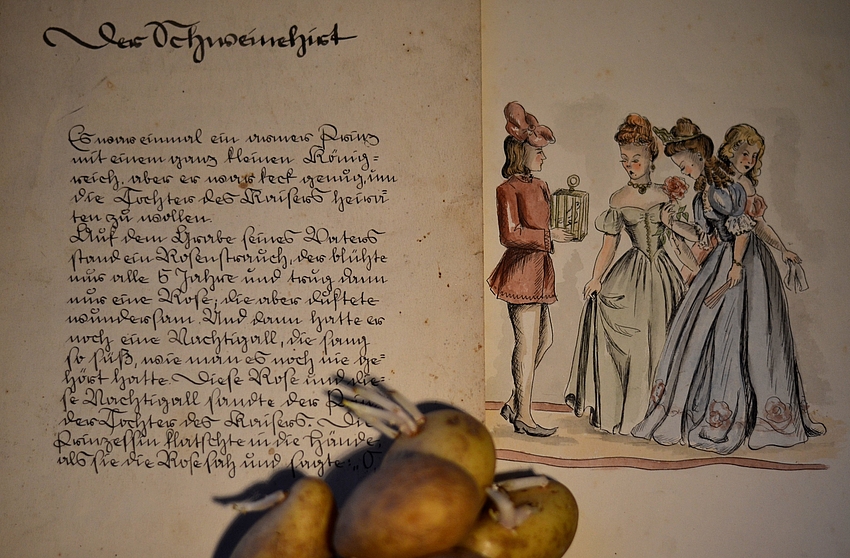 Der Schweinehirt
Es war einmal ein armer Prinz
mit einem ganz kleinen König=
reich, aber er war keck genug, um
die Tochter des Kaisers heira=
ten zu wollen.
Auf dem Grabe seines Vaters
stand ein Rosenstrauch, der blühte
nur alle 5 Jahre und trug dann
nur eine Rose; die aber duftete
wundersam. Und dann hatte er
noch eine Nachtigall, die sang
so süß, wie man es noch nie ge=
hört hatte. Diese Rose und die=
se Nachtigall sandte der Prinz
der Tochter des Kaisers. Die
Prinzessin klatschte in die Hände,
als sie die Rose sah und sagte: „O,